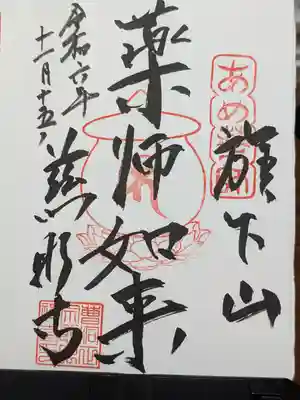 あめ薬師
旗下山
薬師如来
令和六年
十一月十五日